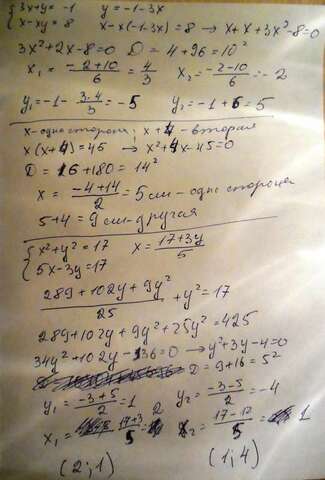 {3x+y=-1 y=-1-3x
{x-xy=8 x-x(-1-3x)=8 → x+x+3x²-8=0
3x²+2x-8=0 D=4+96=10²
x₁=(-2+10)/6=4/3 x₂=(-2-10)/6=-2
y₁=-1-(3·4)/3=-5 y₂=-1+6=5
x-одно сторона; x+4-вторая
x(x+4)=45 → x²+4x-45=0
D=16+180=14²
x=(-4+14)/2=5см-одно сторона
5+4=9см-другая
{x²+y²=17 x=(17+3y)/5
{5x-3y=17
(289+102y+9y²)/25+y²=17
289+102y+9y²+25y²=425
34y²+102y-136=0 → y²+3y-4=0
D=9+16=5²
y₁=(-3+5)/2=1 y₂=(-3-5)/2=-4
x₁= (17+3)/5= 2 x₂=(17-12)/5= 1
(2;1) (1;4)